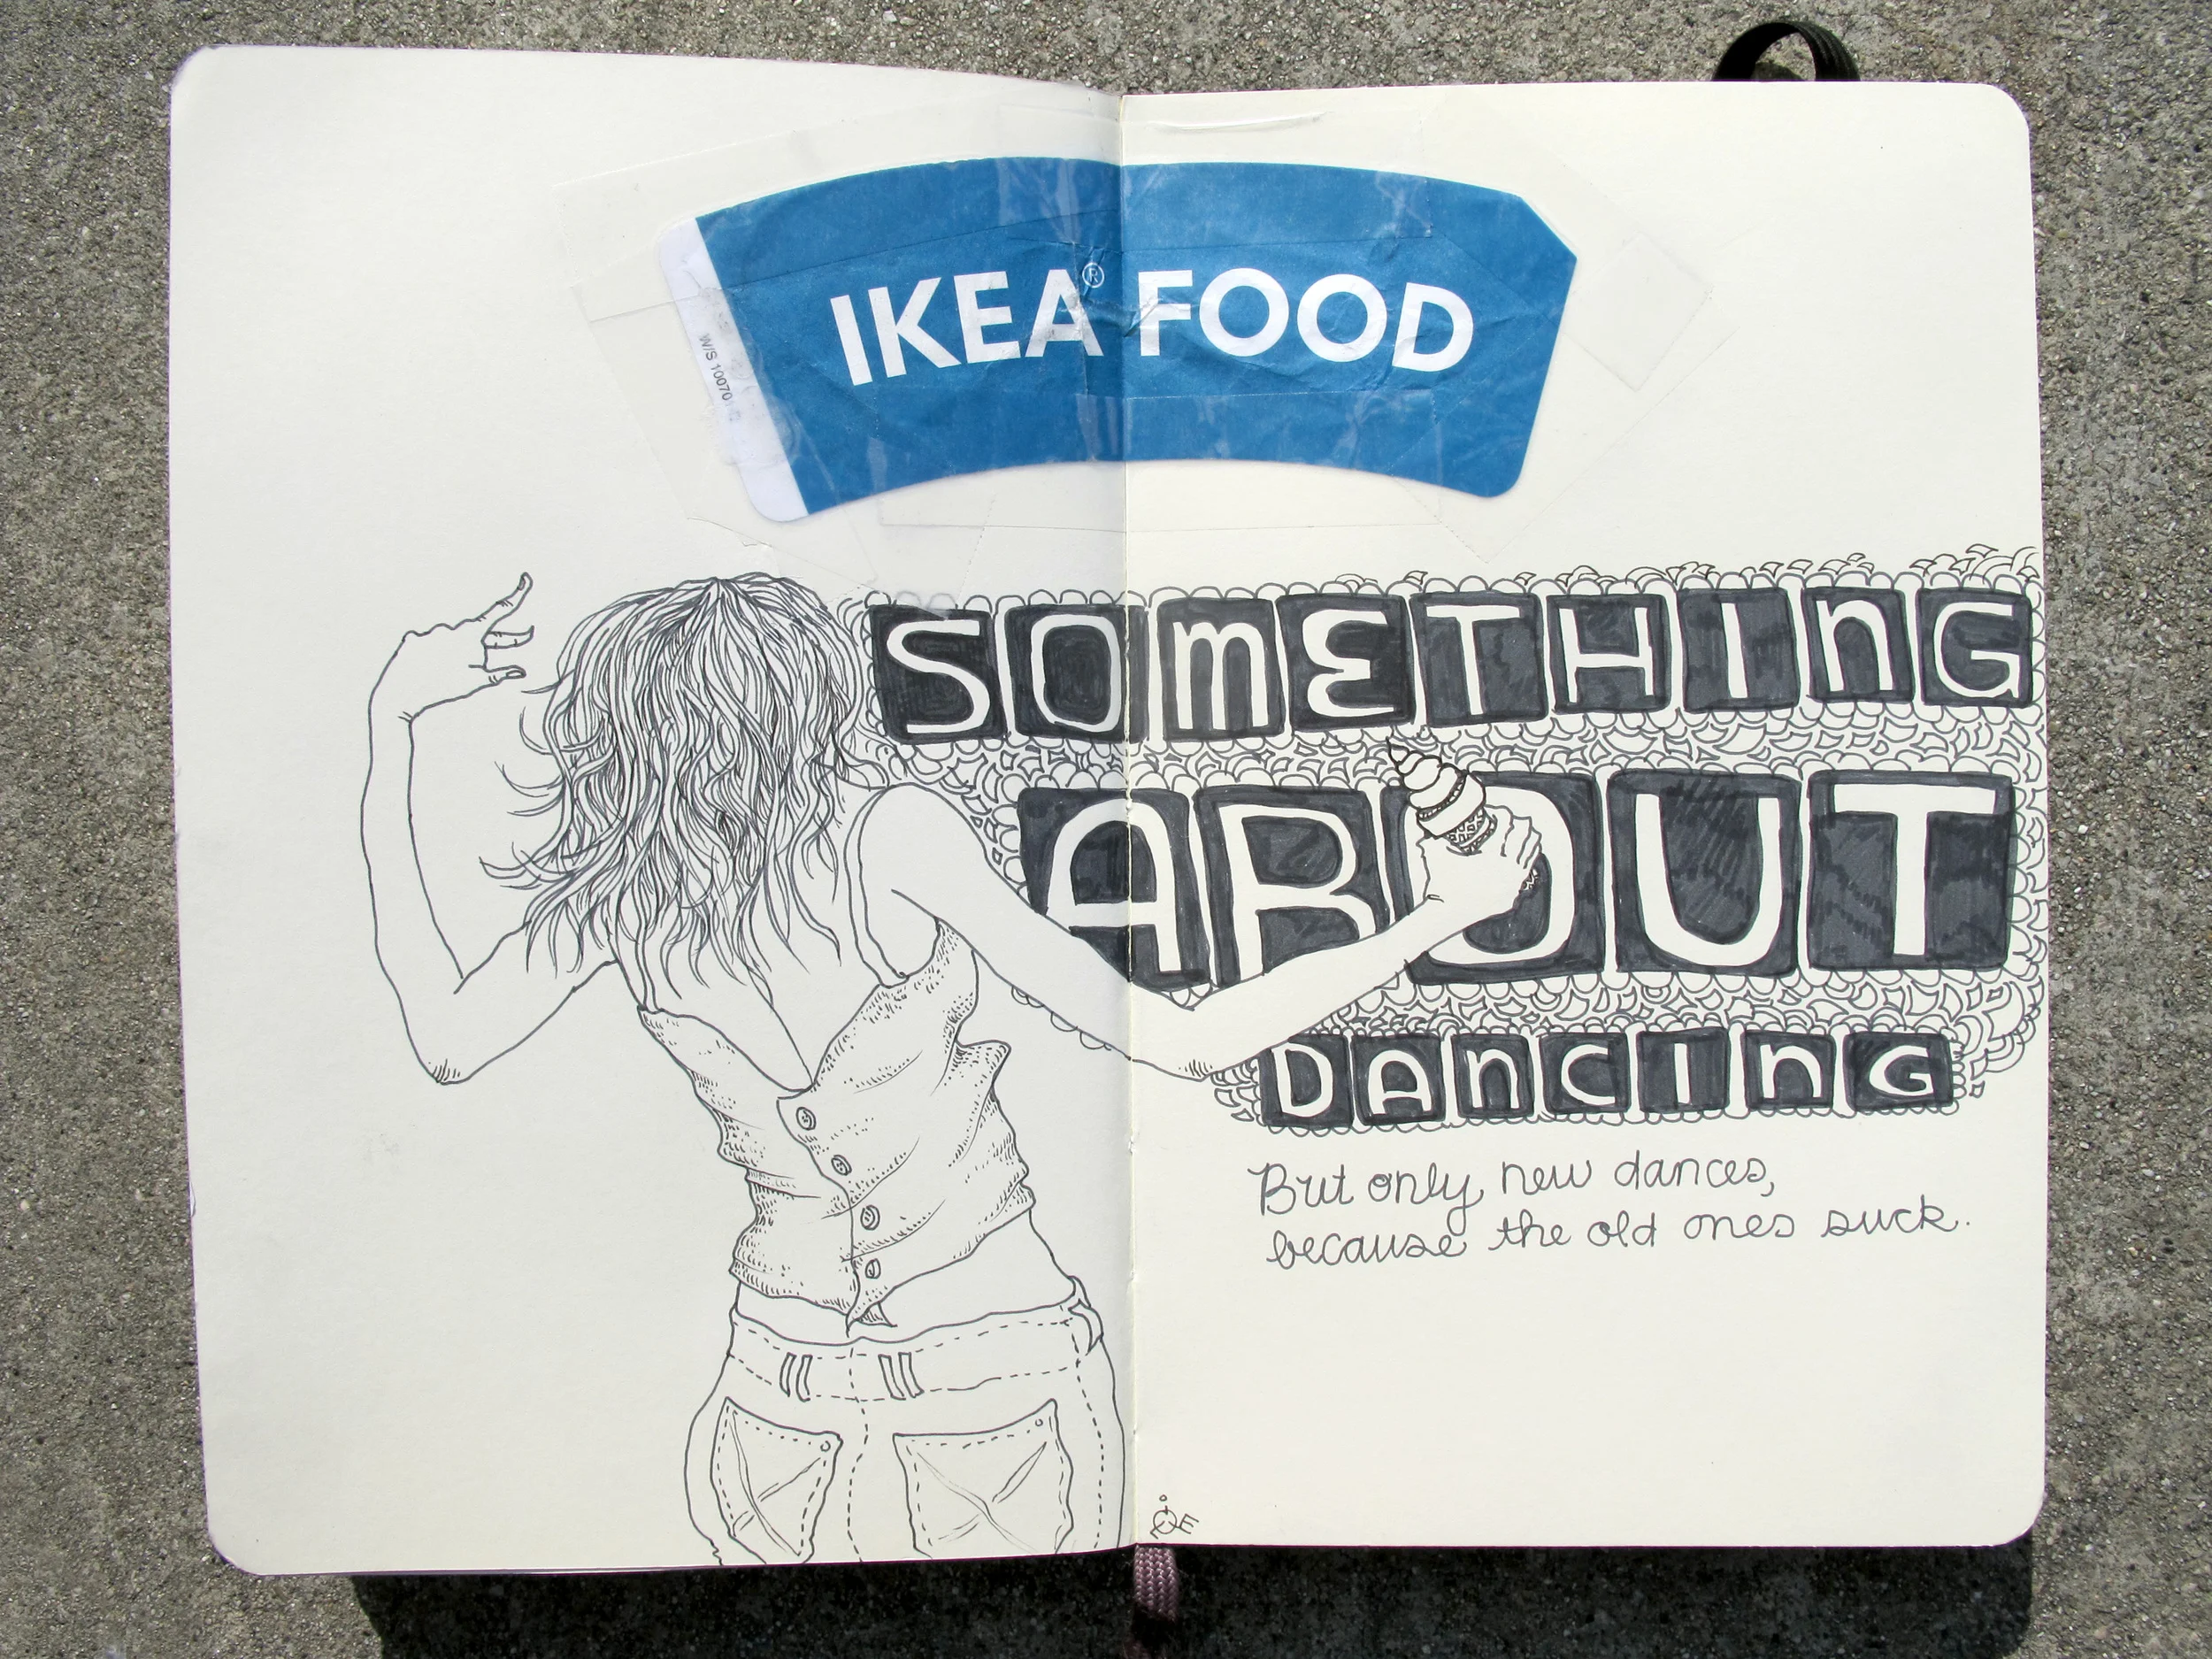 IKEA® FOOD
W/S 10070
SOMETHING
ABOUT
DANCING
But only new dances,
because the old ones suck.